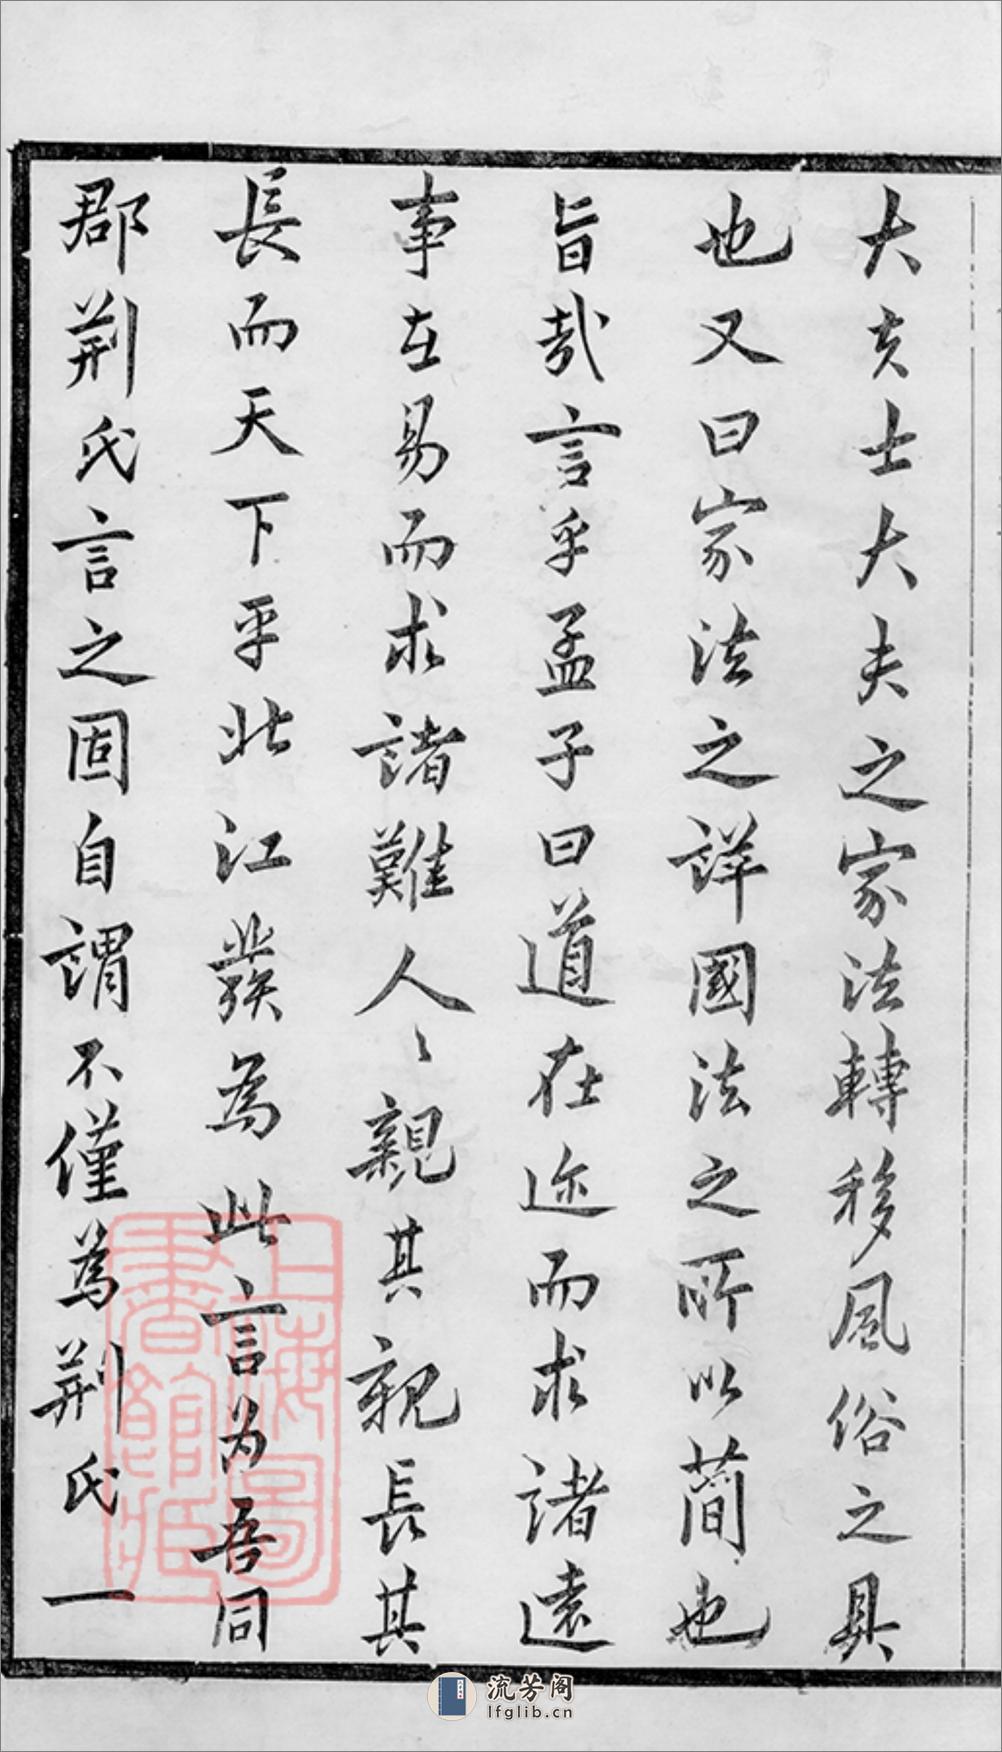 大夫士大夫之家法轉移風俗之具
也又曰家法之詳國法之所以簡也
旨哉言乎孟子曰道在迩而求諸遠
事在易而求諸難人〻親其親長其
長而天下平北江發為此言为吾同
郡荆氏言之固自謂不僅為荆氏一
上海圖書館藏
流芳阁
lfglib.cn